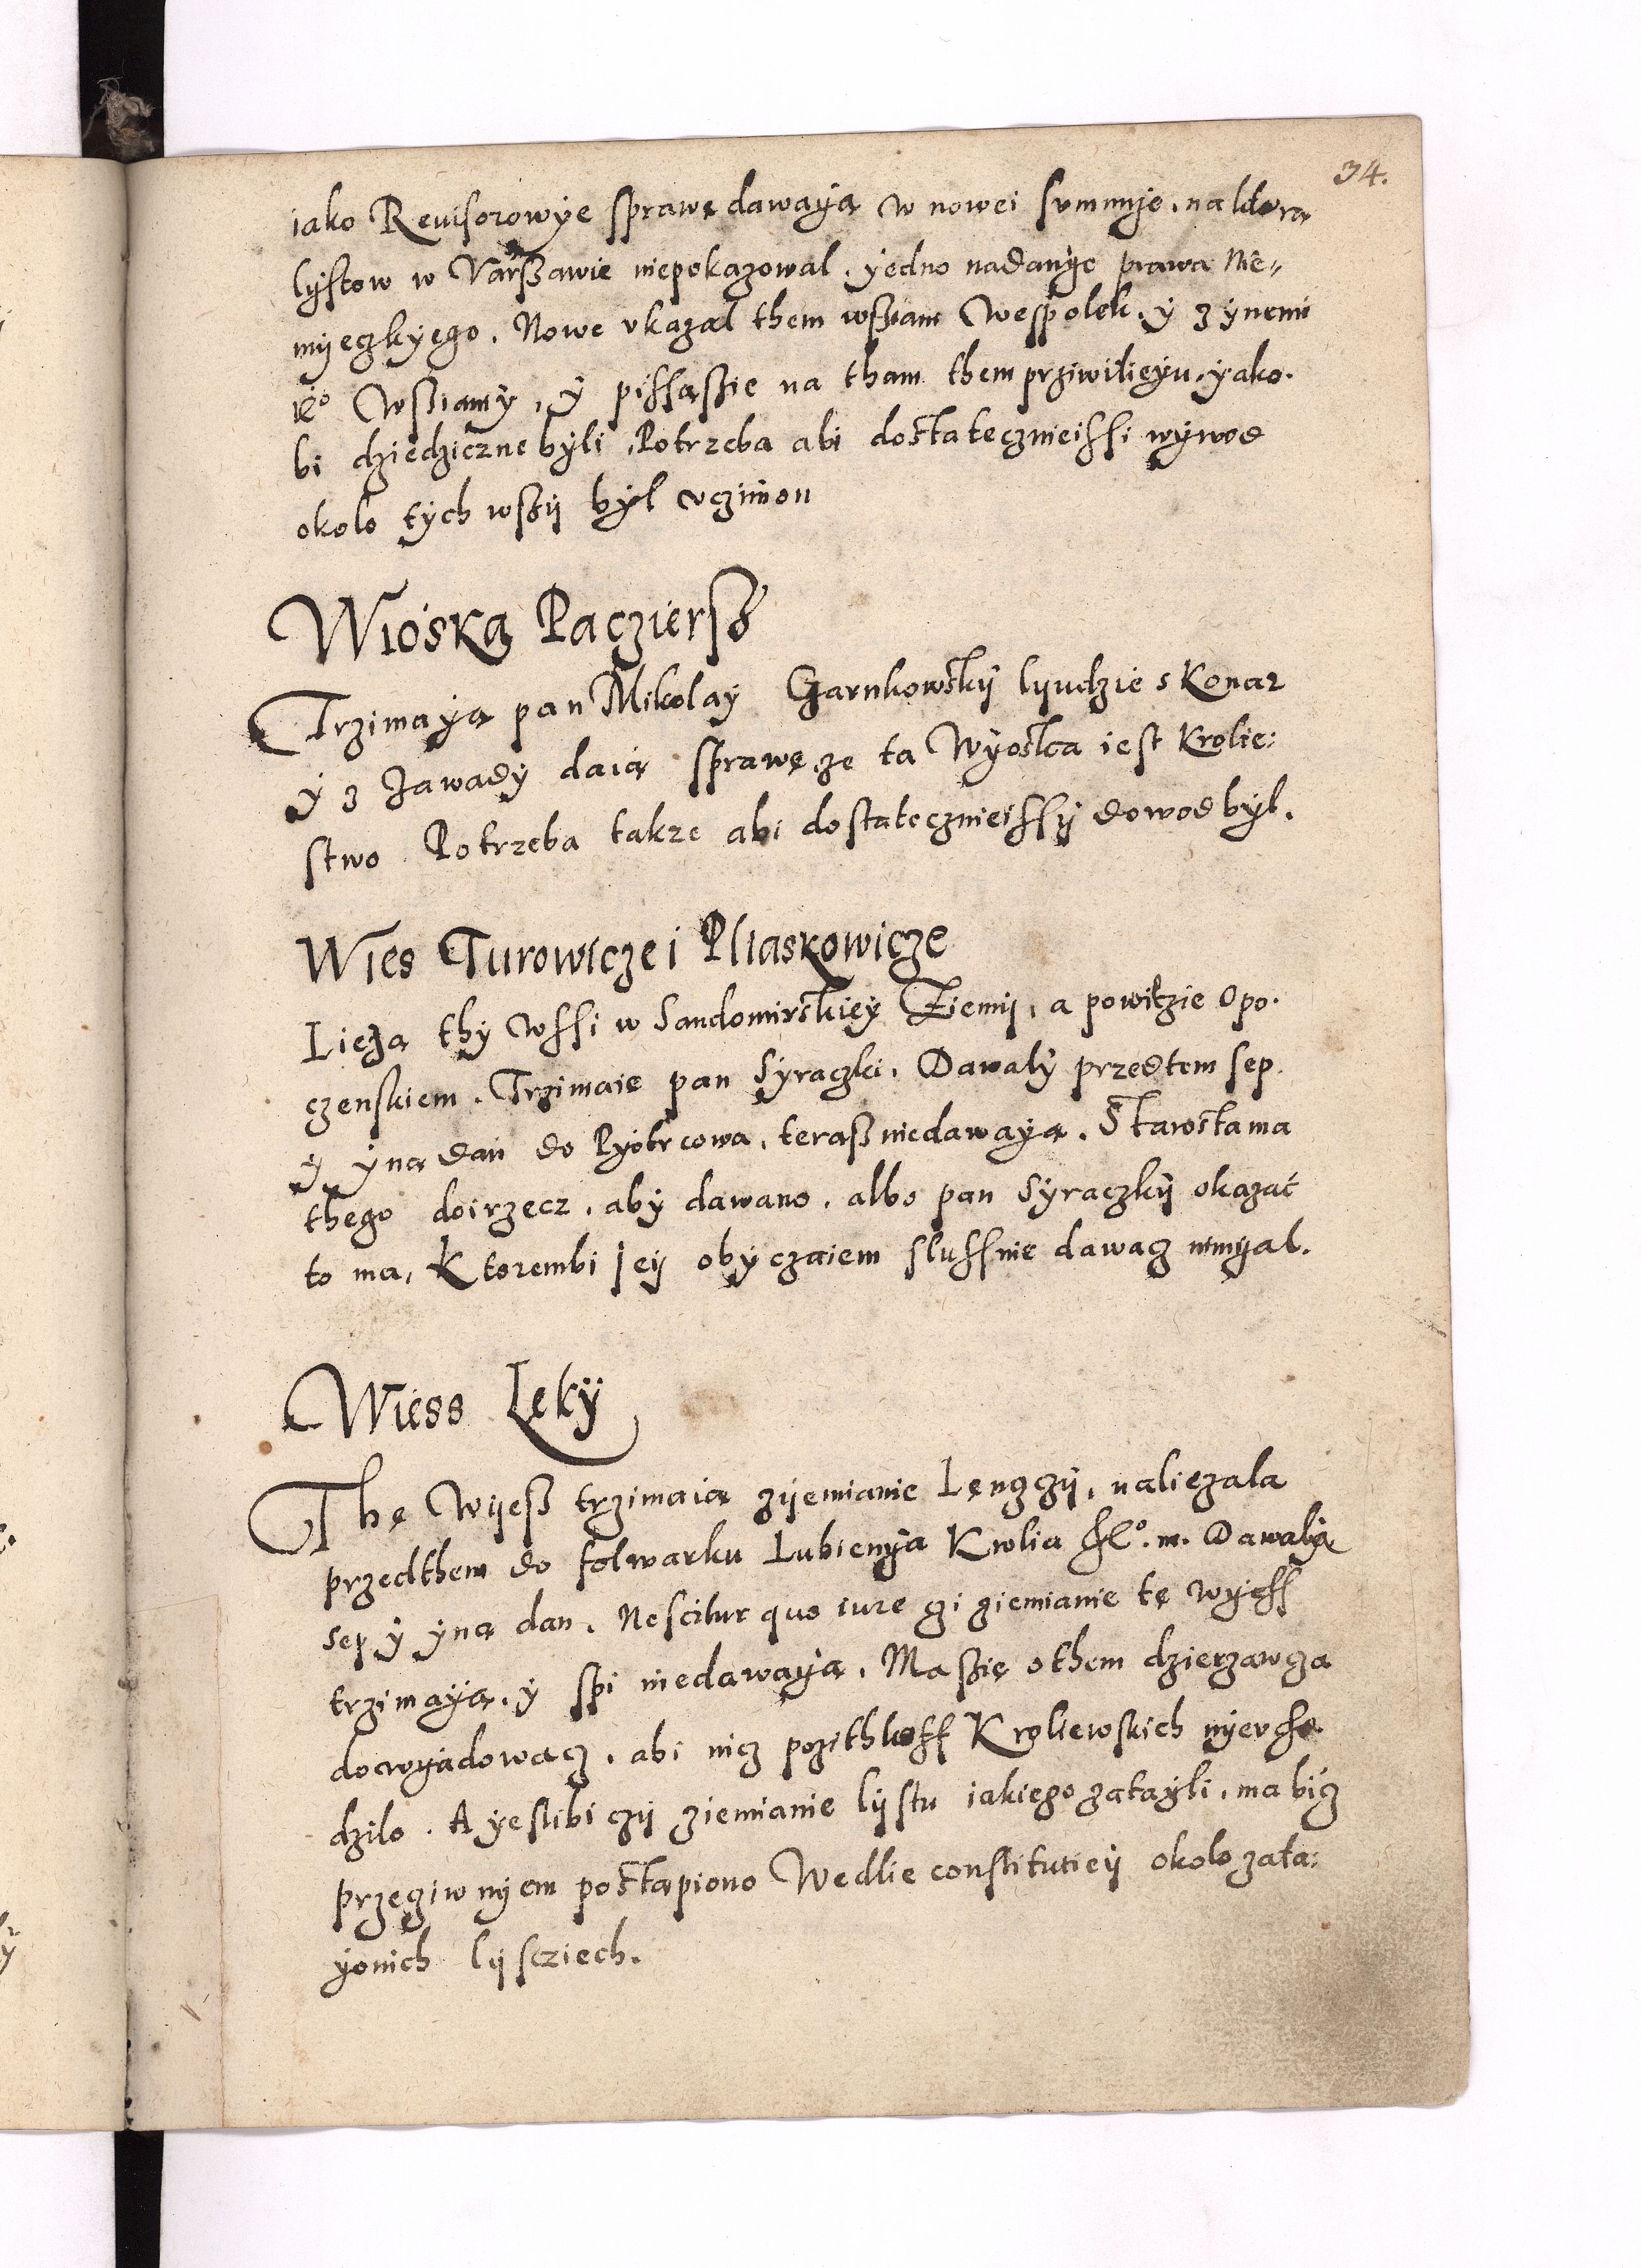 34.
iako Reuisorowÿe sprawę dawaÿą w nowei summÿe, na ktorą
lÿstow w Warßawie niepokazowal. ÿedno nadanÿe prawa Nie-
mÿeczkÿego. Nowe vkazal them wßiam Wespolek, ÿ z ÿnemi
ie° Wßiamÿ, ÿ pissąßie na tham them prziwilieÿu, ÿako
bi dziedziczne bÿli, Potrzeba abi dostatecznieissi wÿwod
okolo tÿch wßÿ bÿl vczinion
Wioską Pacziersz
Trzimaÿą pan Mikolaÿ Czarnkowskÿ lÿudzie s Konar
ÿ z Zawadÿ daią sprawę ze ta Wÿoska iest krolie:
stwo Potrzeba takze abi dostatecznieissÿ dowod bÿl.
Wies Turowicze i Pliaskowicze
Lieżą thÿ Wssi w Sandomirskieÿ Ziemÿ, a powiczie Opo-
czenskiem. Trzimaie pan Sÿraczki, Dawalÿ przedtem sep
ÿ ÿną dan do Pÿotrcowa, teraß niedawaÿą. Starosta ma
thego doirzecz, abÿ dawano, albo pan Sÿraczkÿ okazać
to ma, Ktorembi ieÿ obÿczaiem slussnie dawacz nimÿal.
Wiess Lękÿ
Thę Wÿeß trzimaią zÿemianie Lęngzÿ, naliezala
przedthem do folwarku Lubienÿa Krolia Je°. m. Dawalÿ
sep ÿ ÿną dan, Nescitur quo iure czi ziemianie tę wÿess
trzimaÿą, ÿ spi niedawaÿą, Ma ßię o them dzierzawcza
dowÿadowacz, abi nicz pozithkoff Kroliewskich nÿevcho
dzilo. A ÿeslibi czÿ ziemianie lÿstu iakiego zataÿli, ma bicz
przeciw nÿem postąpiono Wedlie constitutieÿ okolo zata:
ÿonich lÿsciech.